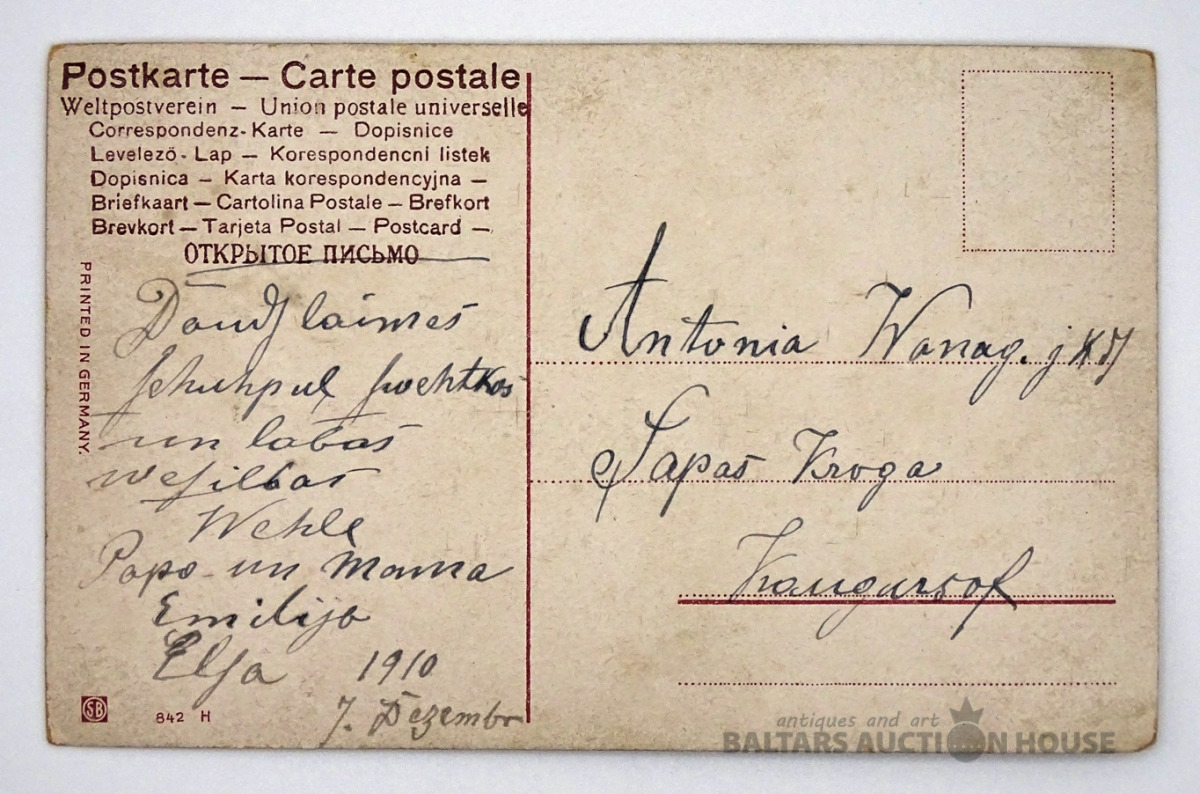 Postkarte — Carte postale
Weltpostverein — Union postale universelle
Correspondenz-Karte — Dopisnice
Levelező-Lap — Korespondencni listek
Dopisnica — Karta korespondencyjna —
Briefkaart — Cartolina Postale — Brefkort
Brevkort — Tarjeta Postal — Postcard —
ОТКРЫТОЕ ПИСЬМО
PRINTED IN GERMANY.
Daudz laimes
schuhpul swehtkos
un labas
wesilbas
Wehle
Papa un Mama
Emilija
Elsa 1910
7. Dezembr
SB
842 H
Antonia Wanag.
Sapas Kroga
Kangursof
antiques and art
BALTARS AUCTION HOUSE